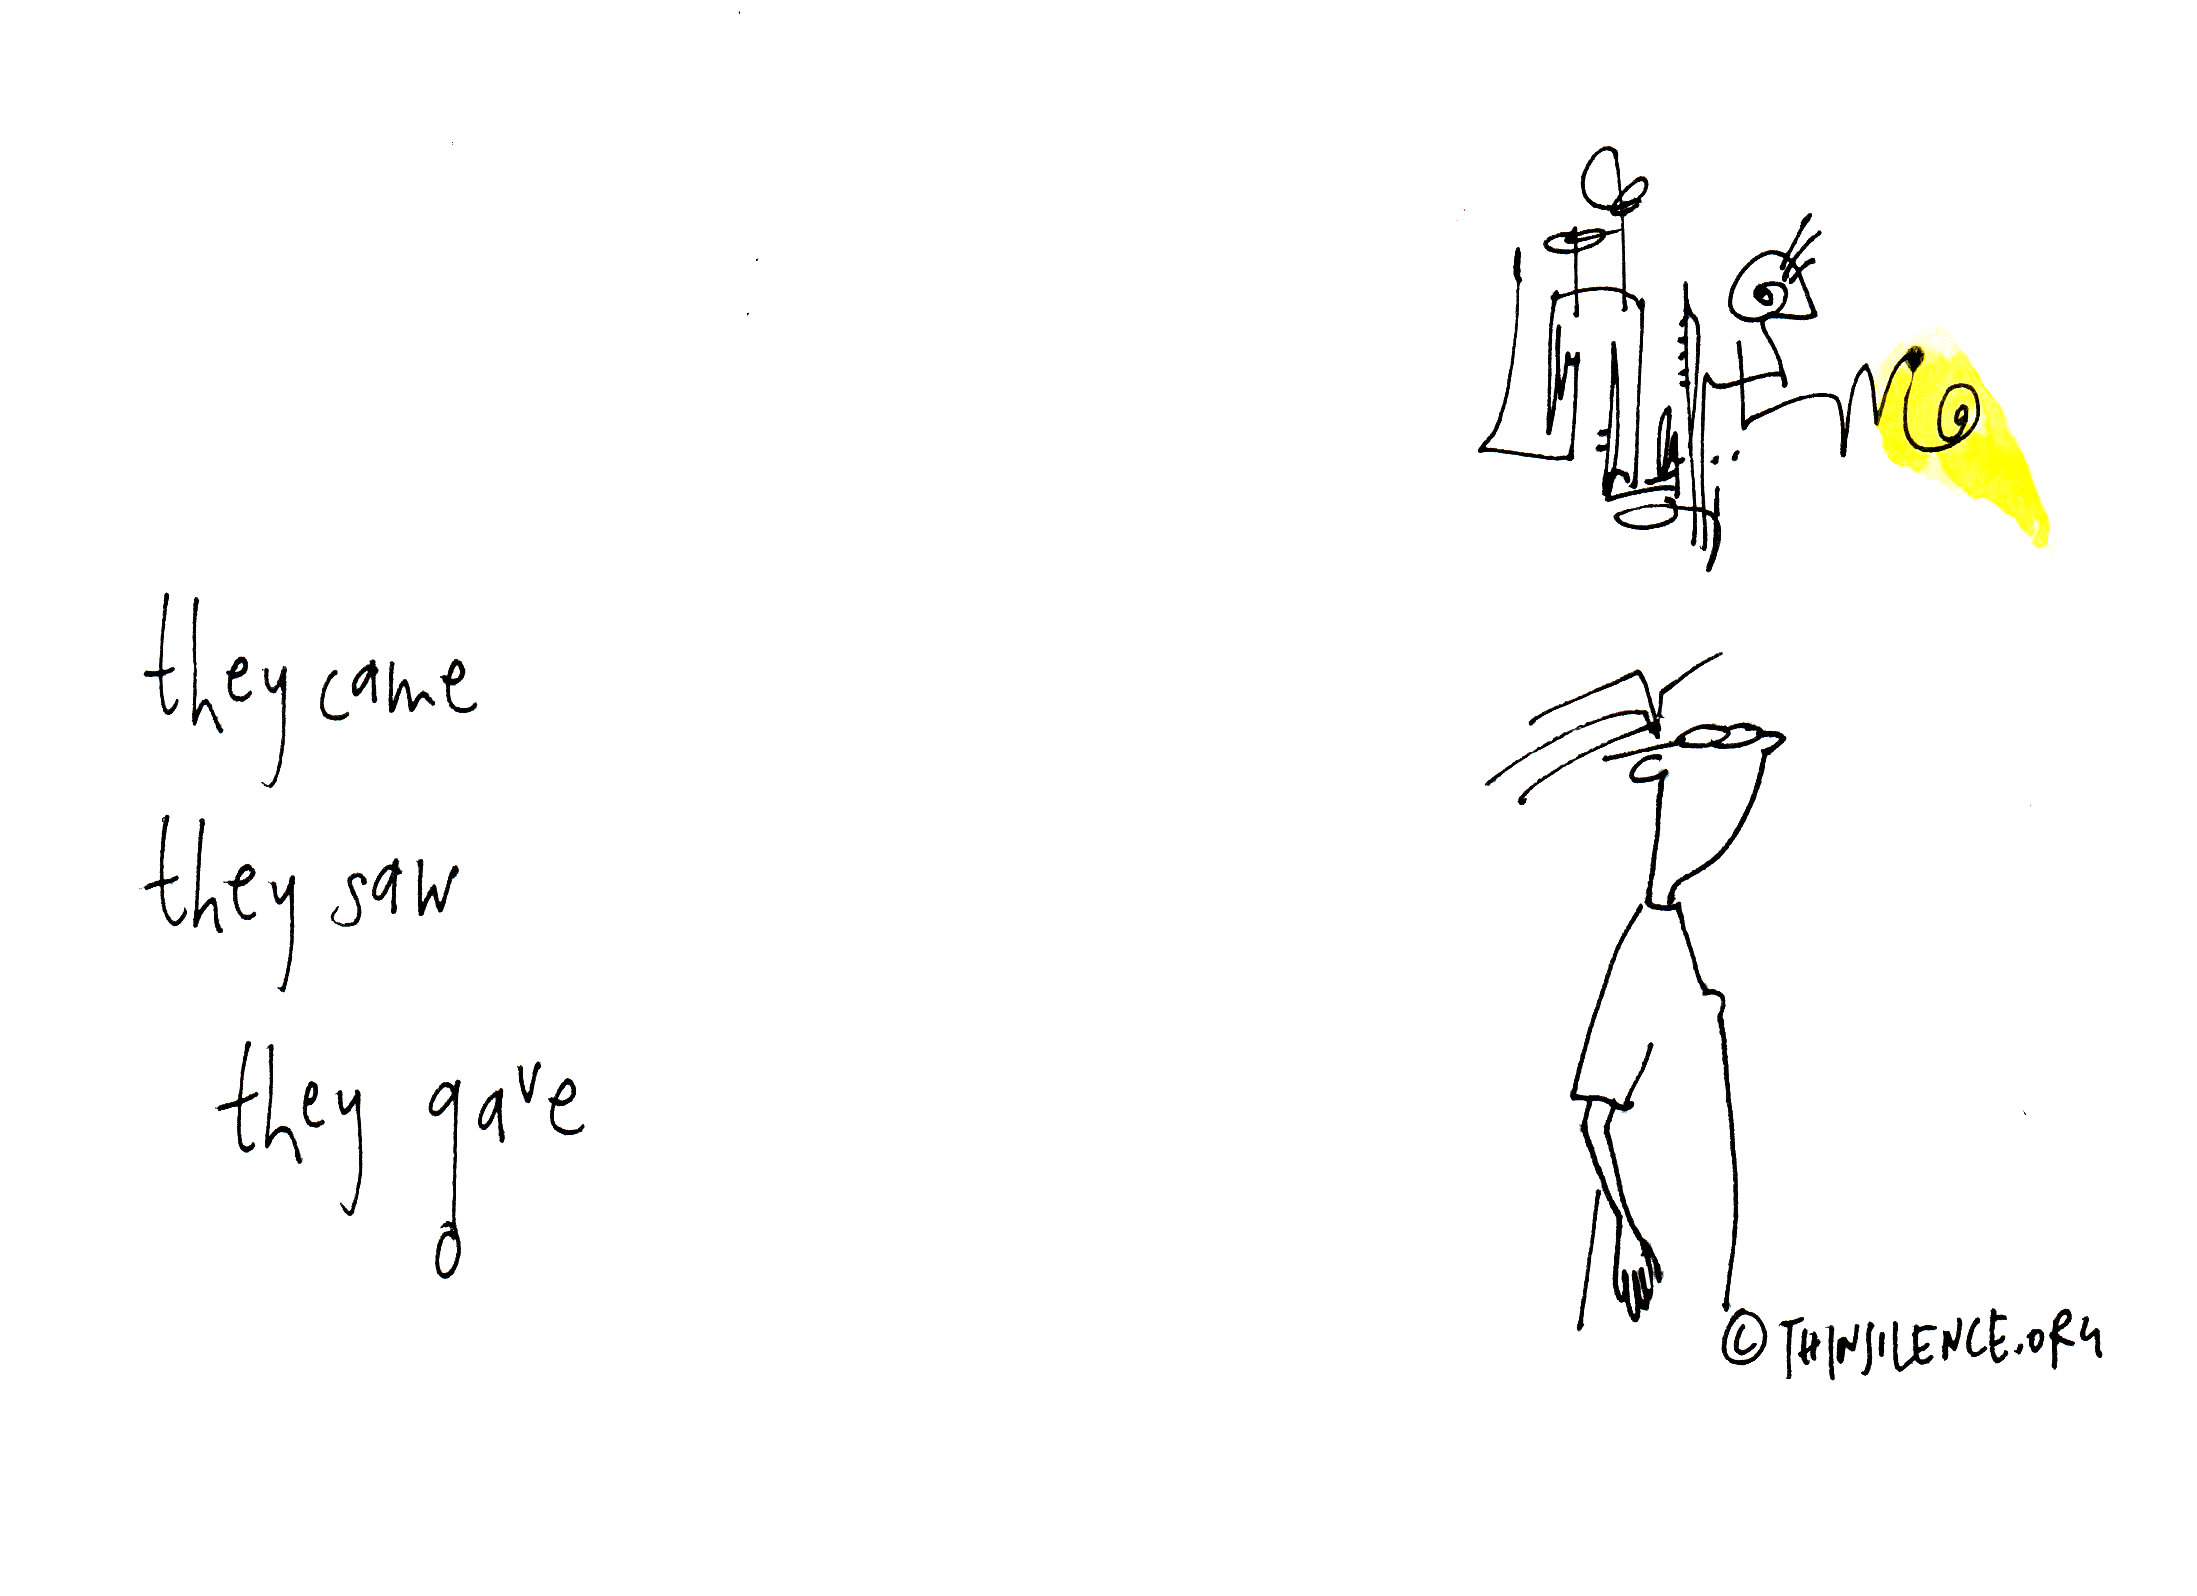 they came
they saw
they gave
© THINSILENCE.ORG